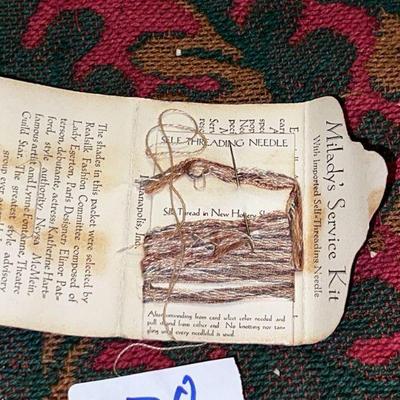 Milady's Service Kit
With Imported Self-Threading Needle
SELF-THREADING NEEDLE
Silk Thread in New Hosiery
After unwinding from card select color needed and
pull strand from either end. No knotting nor tan-
gling until every needleful is used.
Indianapolis, Inc.
The shades in this packet were selected by
Realsilk Fashion Committee composed of
Lady Egerton, Paris Designer; Elinor Pat-
terson, debutante, actress; Katherine Hart-
ford, style authority; Neysa McMein,
famous artist and Lynne Fontanne, Theatre
Guild Star. The greatest style advisory
group ever